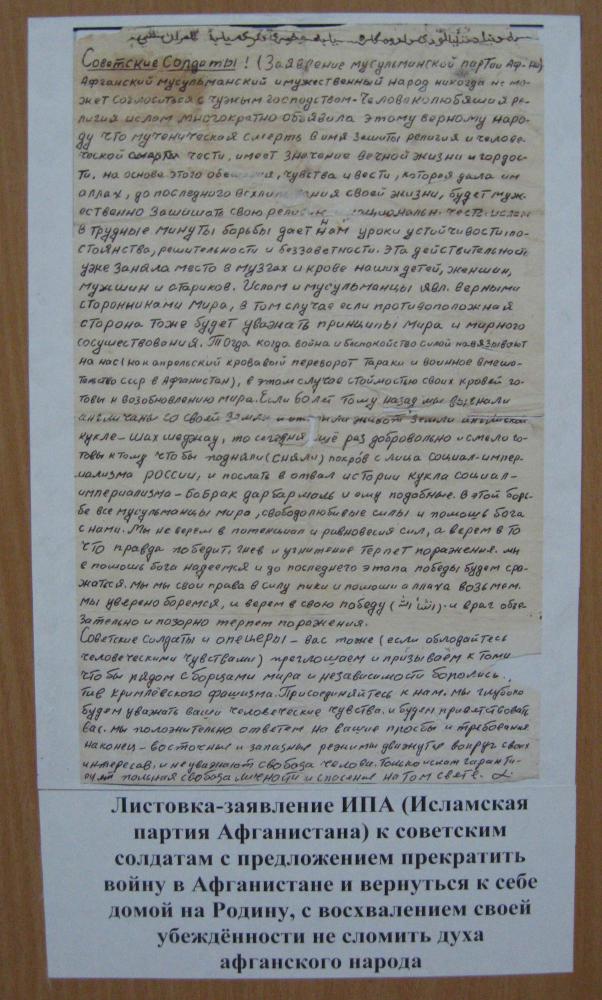 Советские Солдаты! (Заявление мусульманской партии Аф-на)
Афганский мусульманский имужественный народ никогда не мо-
жет согласиться с чужым господством. Человеколюбяшия ре-
лигия ислам многократно обявила этому верному наро-
ду что мученическая смерть во имя зашиты религия и челове-
ческой чести, имеет значение вечной жизни и гордос-
ти. на основе этого чувства и вести, которая дала им
аллах, до последнего своей жизни, будет муж-
ественно зашишать свою честь. ислам
в трудные минуты борьбы дает нам уроки устойчивости по-
стоянства, решительности и беззаветности. Эта действительность
уже заняла место в музгах и крове наших детей, женшин,
мужшин и стариков. Ислам и мусульманцы явл. верными
сторонниками мира, в том случае если противоположная
сторона тоже будет уважать принципы мира и мирного
сосушествования. Тогда когда война и беспокойство силой навязывают
на нас (как апрельский кровавый переворот Тараки и военное вмеша-
тельство ссср в Афганистан), в этом случае стоймостью своих кровей го-
товы к возобновлению мира. Если 60 лет тому назад мы выгнали
англичаны со своей земли
кукле - Шах шеджау, то сегодня ещё раз добровольно и смело го-
товы к тому что бы подняли (сняли) покров с лица социал-импер-
иализма россии, и послать в отвал истории кукла социал-
империализма - бабрак дарбармаль и ему подобные. в этой борь-
бе все мусульманцы мира, свободолюбивые силы и помошь бога
с нами. Мы не верем в потенциал и равновесия сил, а верем в то
что правда победит, гнев и угнитение терпет поражения. мы
с помошь бога надеемся и до последнего этапа победы будем сра-
жаться. мы мы свои права в силу пики и помоши аллаха возьмем.
мы уверено боремся, и верем в свою победу и враг обяз-
зательно и позорно терпет поражения.
Советские солдаты и офецеры - вас тоже (если облодайтесь
человеческими чувствами) преглошаем и призываем к томи
что бы рядом с борцами мира и независимости боролись
тив кримлёвского фошизма. Присоединяйтесь к нам. мы глубоко
будем уважать ваши человеческие чувства. и будем приветствовать
вас. мы положнительно ответем на вашие просьбы и требования
наконец - восточные и западные режимы движутся вокруг своих
интересав, и неуважают свобода челова. Только ислам гаранти-
рует польная свобода личности и спасение на том свете.
Листовка-заявление ИПА (Исламская
партия Афганистана) к советским
солдатам с предложением прекратить
войну в Афганистане и вернуться к себе
домой на Родину, с восхвалением своей
убеждённости не сломить духа
афганского народа